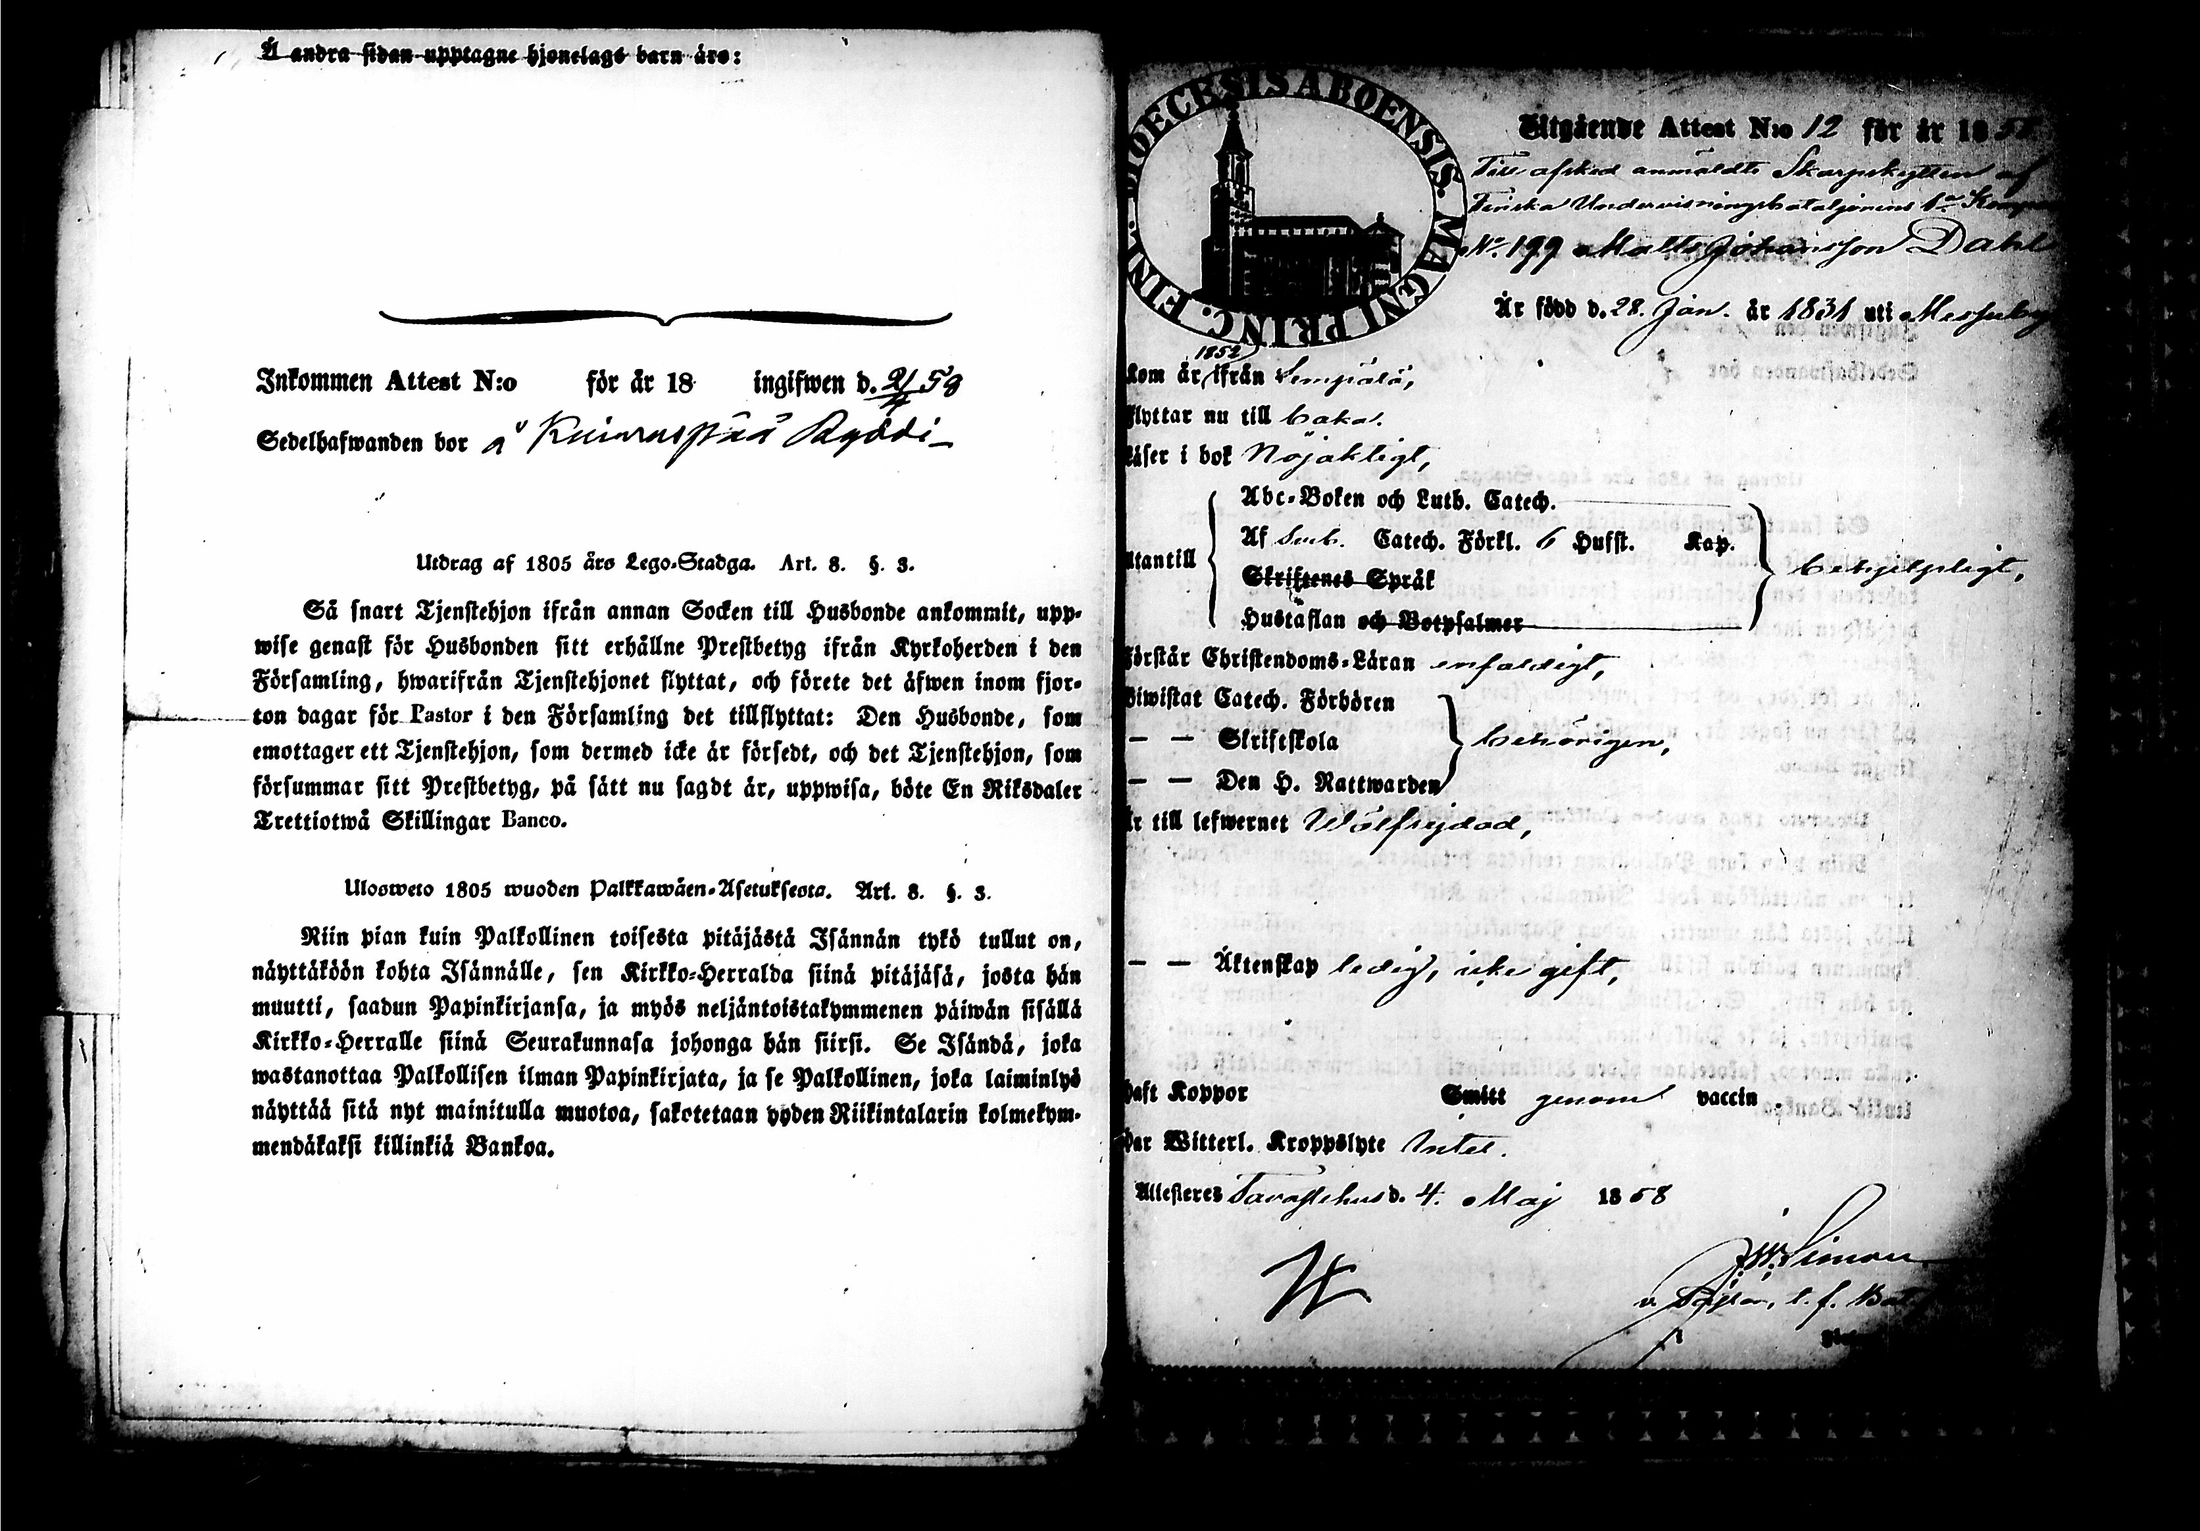 Å andra sidan upptagne hjonelags barn äro:
Inkommen Attest N:o för år 18 ingifwen d. 2/4 58
Sedelhafwanden bor å
Utdrag af 1805 års Lego-Stadga. Art. 8. §. 3.
Så snart Tjenstehjon ifrån annan Socken till Husbonde ankommit, upp-
wise genast för Husbonden sitt erhållne Prestbetyg ifrån Kyrkoherden i den
Församling, hwarifrån Tjenstehjonet flyttat, och förete det äfwen inom fjor-
ton dagar för Pastor i den Församling det tillflyttat: Den Husbonde, som
emottager ett Tjenstehjon, som dermed icke är försedt, och det Tjenstehjon, som
försummar sitt Prestbetyg, på sätt nu sagdt är, uppwisa, böte En Riksdaler
Trettiotwå Skillingar Banco.
Ulosweto 1805 wuoden Palkkawäen-Asetuksesta. Art. 8. §. 3.
Niin pian kuin Palkollinen toisesta pitäjästä Isännän tykö tullut on,
näyttäköön kohta Isännälle, sen Kirkko-Herralda siinä pitäjäsä, josta hän
muutti, saadun Papinkirjansa, ja myös neljäntoistakymmenen päiwän sisällä
Kirkko-Herralle siinä Seurakunnasa johonga hän siirsi. Se Isändä, joka
wastanottaa Palkollisen ilman Papinkirjata, ja se Palkollinen, joka laiminlyö
näyttää sitä nyt mainitulla muotoa, sakotetaan yhden Riikintalarin kolmekym-
mendäkaksi killinkiä Bankoa.
DIOECESIS ABOENSIS. MAGNI PRINC. FINL.
Utgående Attest N:o 12 för år 1858
Till afsked anmäldte Skarpskytten af
Finska Undervisningsbataljonens 1a Komp
No. 199 Matts Johansson Dahl
Är född d. 28. Jan. år 1831 uti Messuby
1852
Kom år ifrån Lempälä,
Flyttar nu till
Läser i bok Nöjaktigt,
Abc-Boken och Luth. Catech.
Af Catech. Förkl. 6 Hufst. Kap.
Utantill
Skriftenes Språk
behjelpligt,
Hustaflan och Botpsalmer
Förstår Christendoms-Läran enfaldigt,
Biwistat Catech. Förhören
— — Skriftskola behörigen,
— — Den H. Nattwarden
Är till lefwernet Wälfrejdad,
— — Äktenskap ledig, icke gift,
Haft Koppor Smitt genom vaccin.
Har Witterl. Kroppslyte Intet.
Attesteres Tavastehus d. 4. Maj 1858